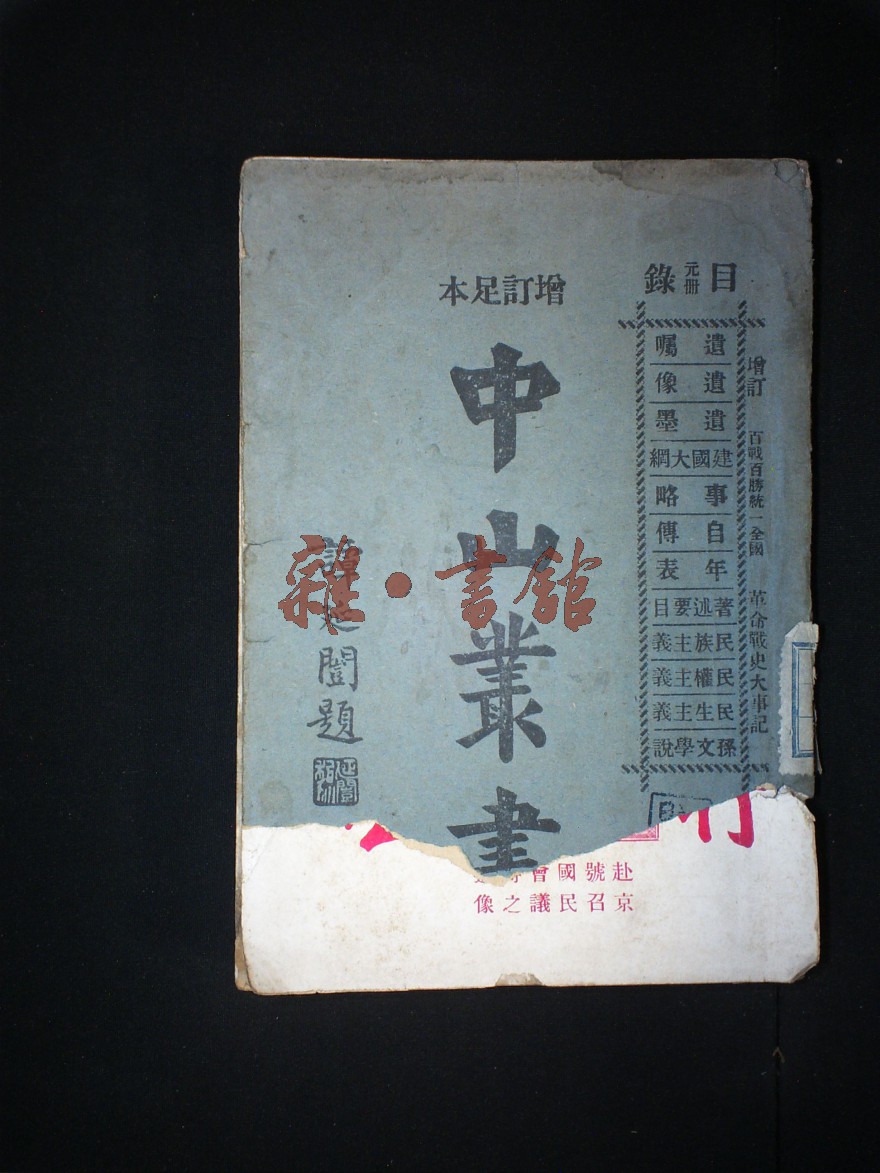 增訂 百戰百勝統一全國 革命戰史大事記
目 元冊 錄
遺囑
遺像
遺墨
建國大綱
事略
自傳
年表
著述要目
民族主義
民權主義
民生主義
孫文學說
增訂足本
中山叢書
譚延闓題
雜·書館
赴號國會
京召民議之像